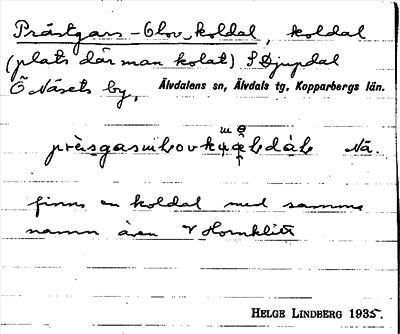 Prästgars-Olov-koldal, koldal
(plats där man kolat) S Djupdal
Ö Näsets by, Älvdalens sn, Älvdals tg, Kopparbergs län.
Nä.
finns en koldal med samma
namn även V Hornklitt
HELGE LINDBERG 1935.